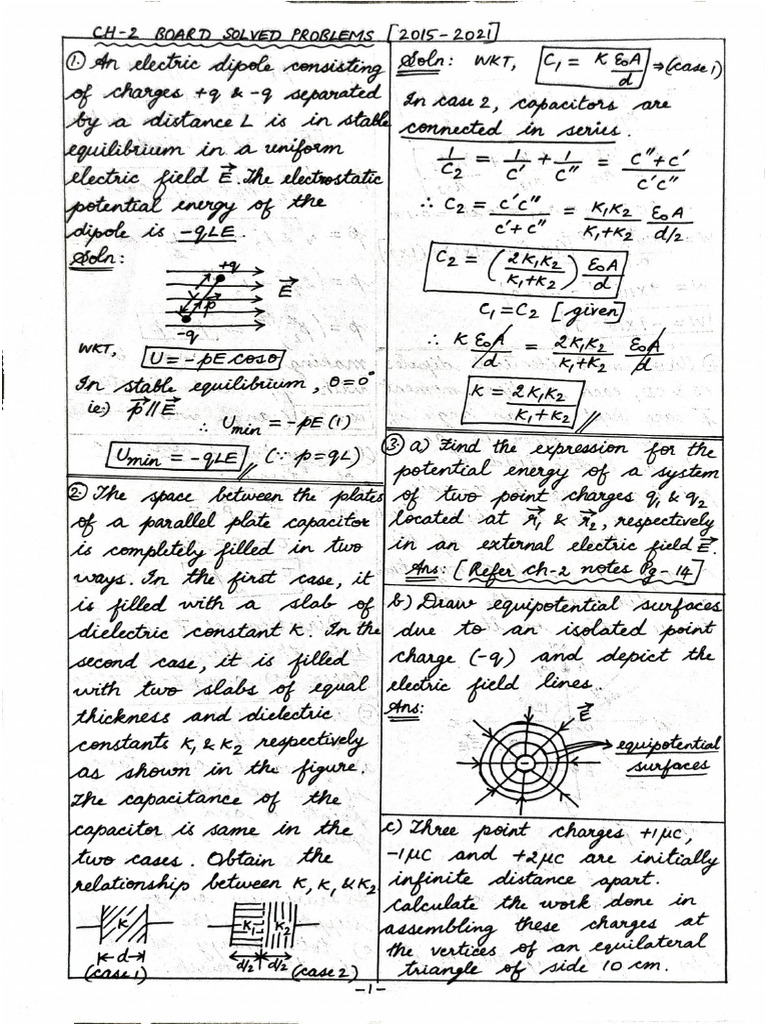 CH-2 BOARD SOLVED PROBLEMS [2015-2021]
1. An electric dipole consisting
of charges +q & -q separated
by a distance L is in stable
equilibrium in a uniform
electric field E⃗. The electrostatic
potential energy of the
dipole is -qLE.
Soln:
+q
E⃗
p⃗
-q
WKT, U = -pE cosθ
In stable equilibrium, θ=0°
ie:) p⃗ ∥ E⃗
∴ Umin = -pE (1)
Umin = -qLE // (∵ p=qL)
2. The space between the plates
of a parallel plate capacitor
is completely filled in two
ways. In the first case, it
is filled with a slab of
dielectric constant K. In the
second case, it is filled
with two slabs of equal
thickness and dielectric
constants K₁ & K₂ respectively
as shown in the figure.
The capacitance of the
capacitor is same in the
two cases. Obtain the
relationship between K, K₁ & K₂
K K₁ K₂
d d/2 d/2
(case 1) (case 2)
Soln: WKT, C₁ = K ε₀A/d ⇒ (case 1)
In case 2, capacitors are
connected in series.
1/C₂ = 1/C' + 1/C'' = (C''+C')/(C'C'')
∴ C₂ = C'C''/(C'+C'') = K₁K₂/(K₁+K₂) ε₀A/(d/2)
C₂ = (2K₁K₂/(K₁+K₂)) ε₀A/d
C₁=C₂ [given]
∴ K ε₀A/d = 2K₁K₂/(K₁+K₂) ε₀A/d
K = 2K₁K₂/(K₁+K₂) //
3. a) Find the expression for the
potential energy of a system
of two point charges q₁ & q₂
located at r⃗₁ & r⃗₂, respectively
in an external electric field E⃗.
Ans: [Refer ch-2 notes Pg-14]
b) Draw equipotential surfaces
due to an isolated point
charge (-q) and depict the
electric field lines.
Ans:
E⃗
equipotential
surfaces
c) Three point charges +1μC,
-1μC and +2μC are initially
infinite distance apart.
Calculate the work done in
assembling these charges at
the vertices of an equilateral
triangle of side 10 cm.
-1-